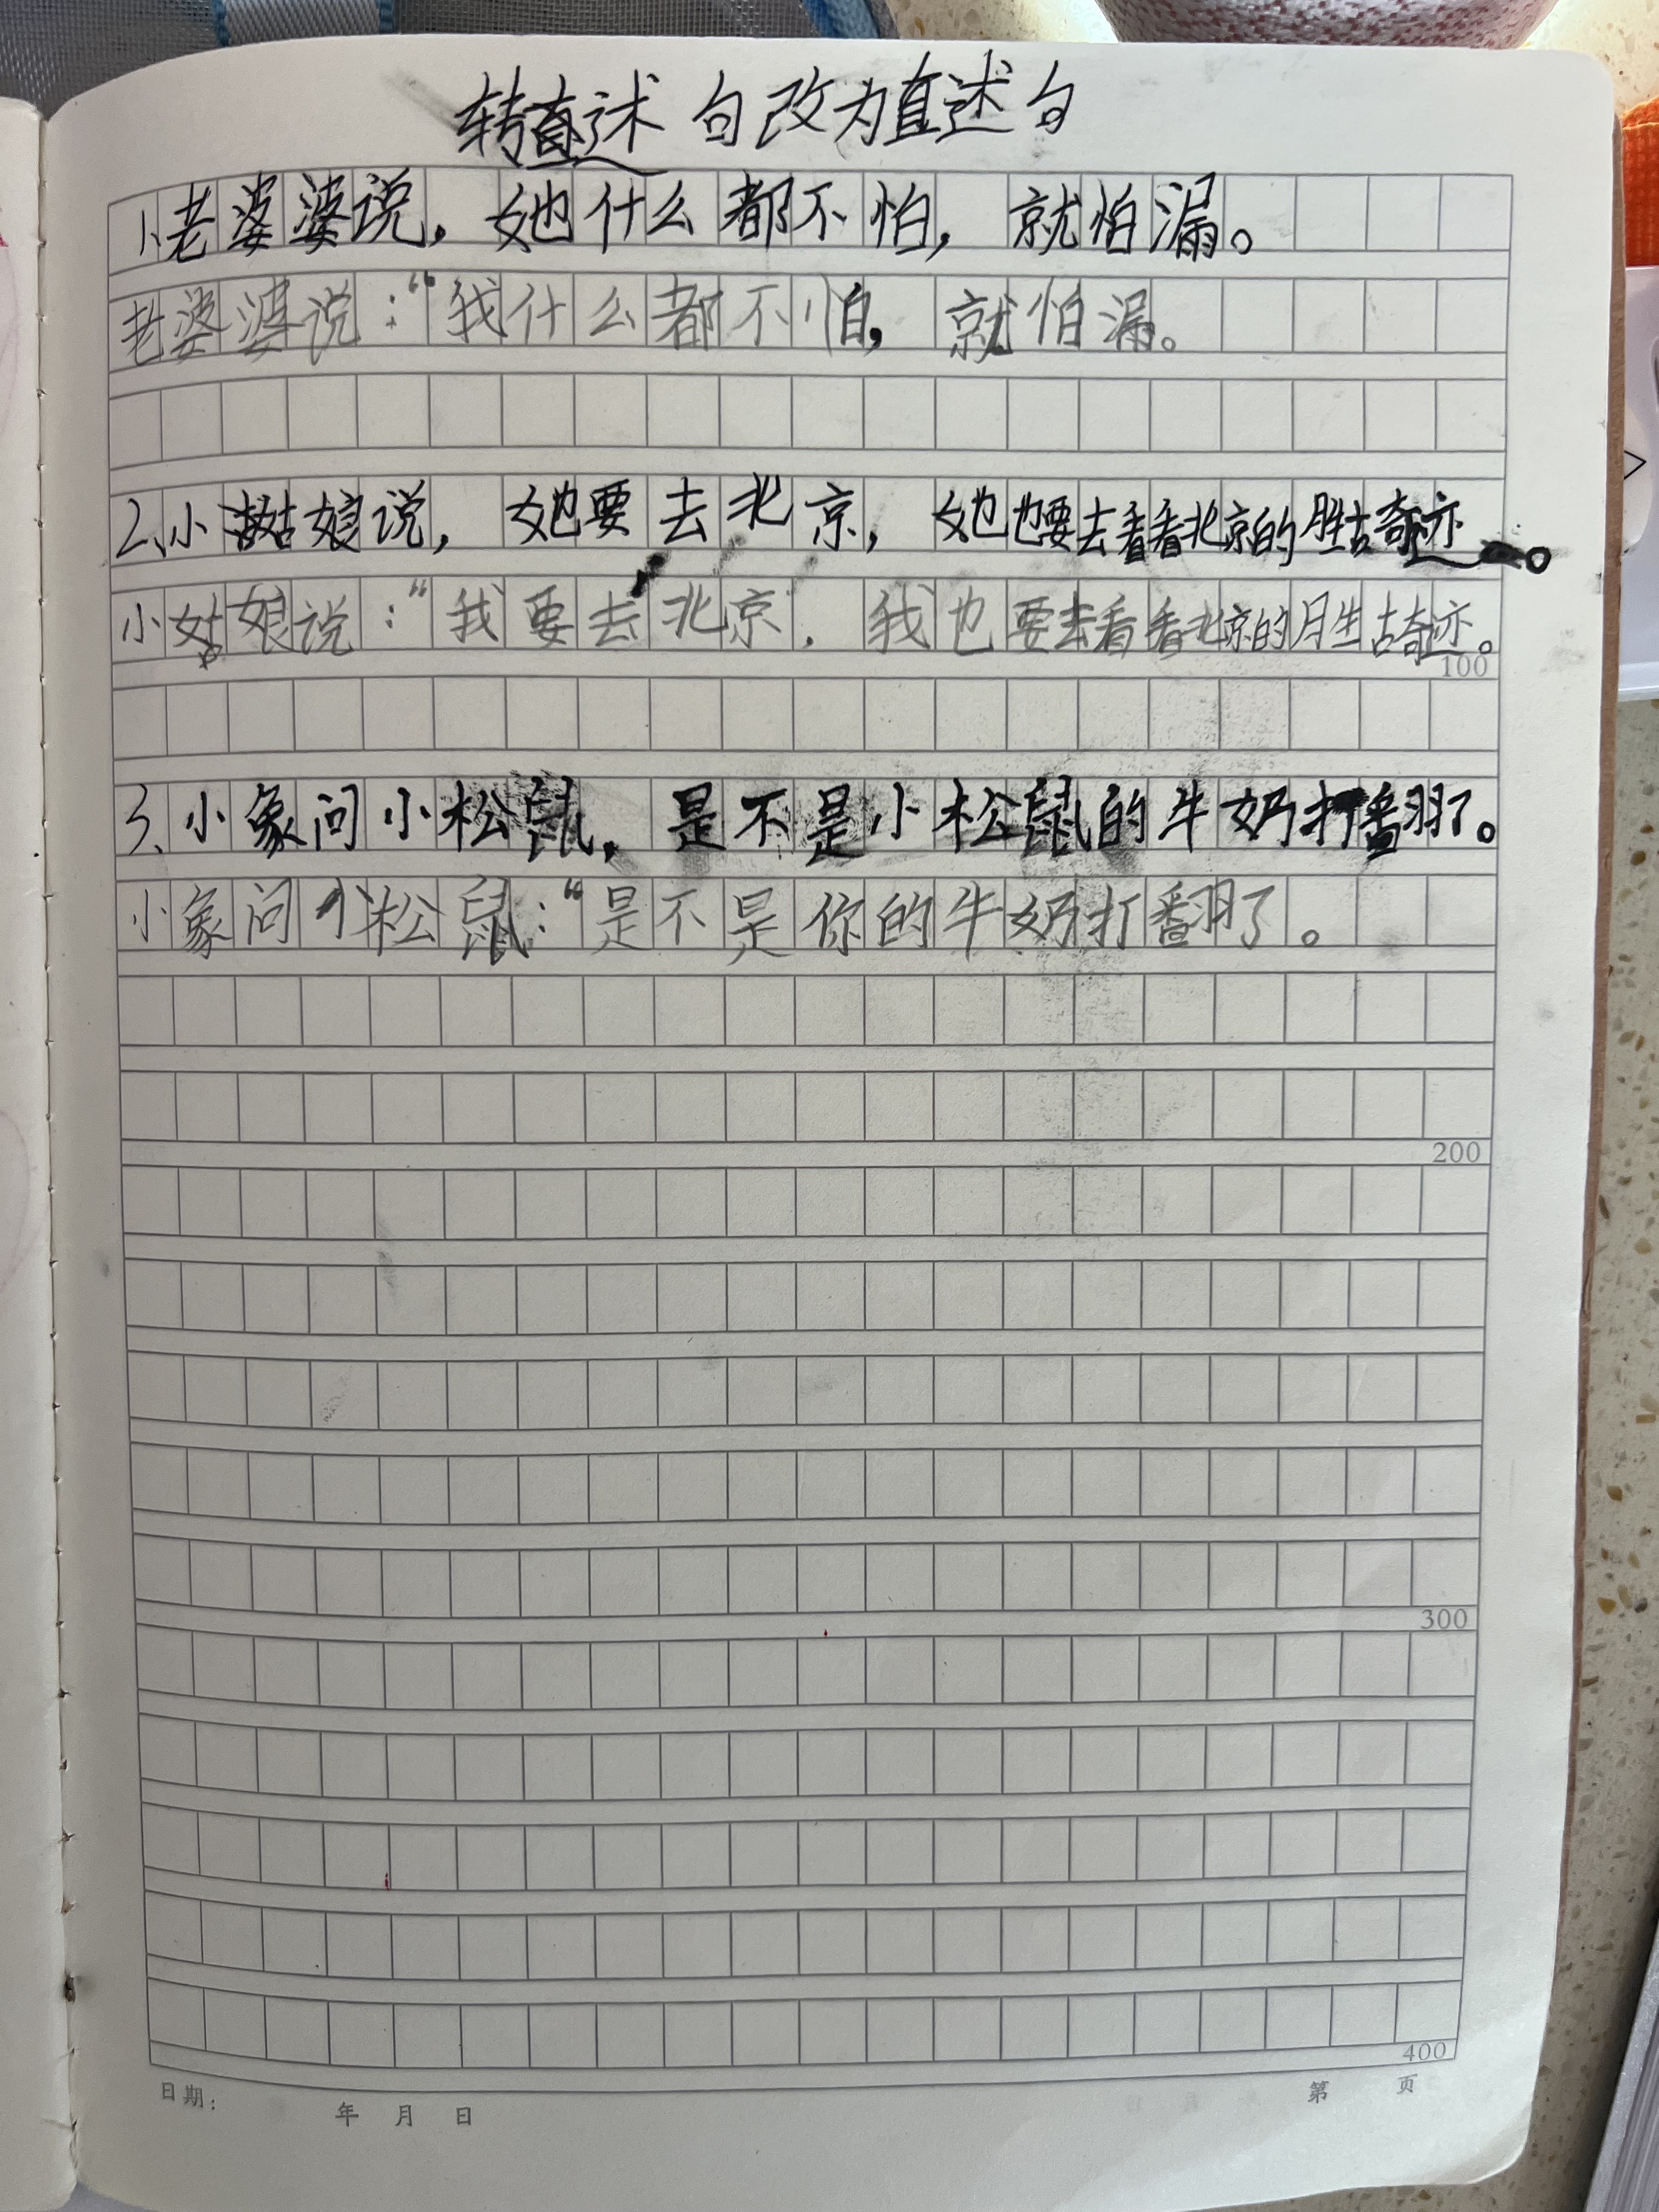 转述句改为直述句
1、老婆婆说，她什么都不怕，就怕漏。
老婆婆说：“我什么都不怕，就怕漏。
2、小姑娘说，她要去北京，她也要去看看北京的胜古奇迹。
小姑娘说：“我要去北京，我也要去看看北京的胜古奇迹。
100
3、小象问小松鼠，是不是小松鼠的牛奶打翻了。
小象问小松鼠：“是不是你的牛奶打翻了。
200
300
400
日期： 年 月 日 第 页